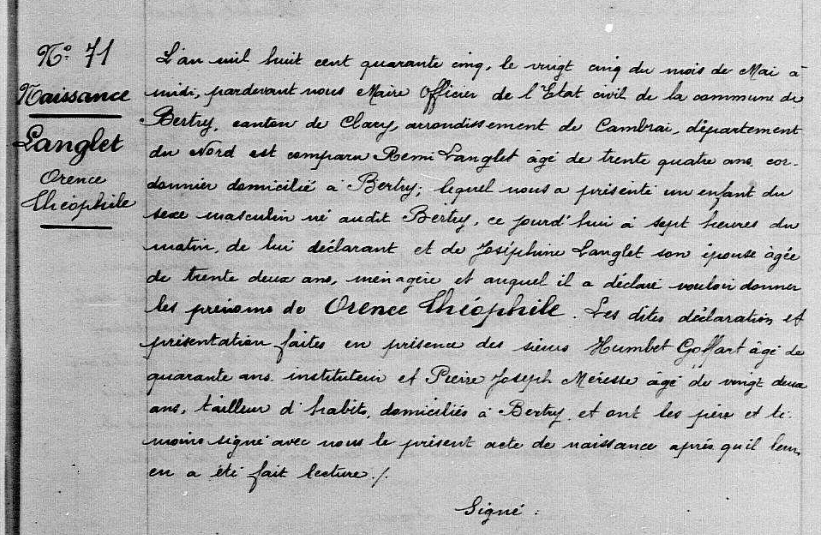 N° 71
Naissance
Langlet
Orence
Théophile
L'an mil huit cent quarante cinq, le vingt cinq du mois de Mai à
midi, pardevant nous Maire Officier de l'Etat civil de la commune de
Bertry, canton de Clary, arrondissement de Cambrai, département
du Nord est comparu Remi Langlet âgé de trente quatre ans, cor-
donnier domicilié à Bertry; lequel nous a présenté un enfant du
sexe masculin né audit Bertry, ce jourd'hui à sept heures du
matin, de lui déclarant et de Joséphine Langlet son épouse âgée
de trente deux ans, ménagère et auquel il a déclaré vouloir donner
les prénoms de Orence Théophile. Les dites déclaration et
présentation faites en présence des sieurs Humbet Goffart âgé de
quarante ans instituteur et Pierre Joseph Méresse âgé de vingt deux
ans, tailleur d'habits, domiciliés à Bertry et ont les père et té-
moins signé avec nous le présent acte de naissance après qu'il leur
en a été fait lecture ./.
Signé :